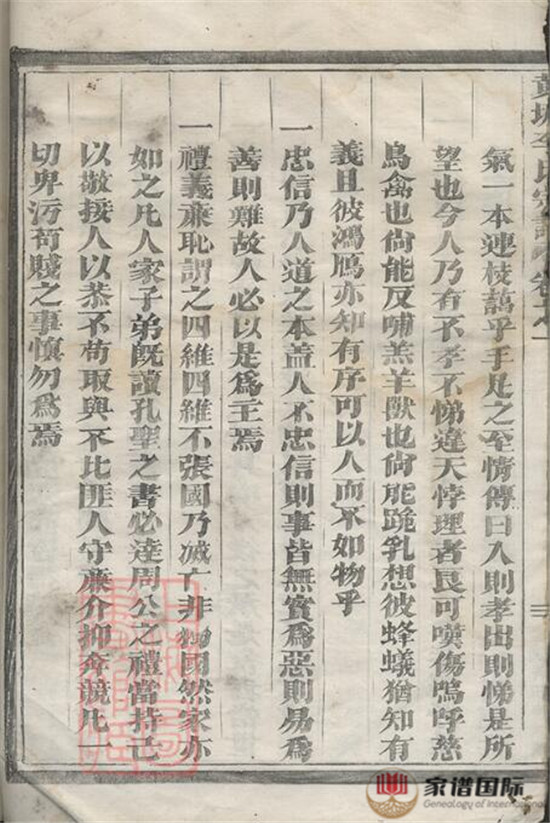 氣一本連枝藹乎手足之至情傳曰入則孝出則悌是所
望也今人乃有不孝不悌違天悖理者良可嘆傷嗚呼慈
鳥禽也尙能反哺羔羊獸也尙能跪乳想彼蜂蟻猶知有
義且彼鴻鴈亦知有序可以人而不如物乎
一忠信乃人道之本盖人不忠信則事皆無實爲惡則易爲
善則難故人必以是爲主焉
一禮義亷恥謂之四維四維不張國乃滅亡非獨國然家亦
如之凡人家子弟旣讀孔聖之書必達周公之禮當持己
以敬接人以恭不苟取與不比匪人守亷介抑奔競凡一
切卑污苟賤之事慎勿爲焉
家谱国际
Genealogy of International